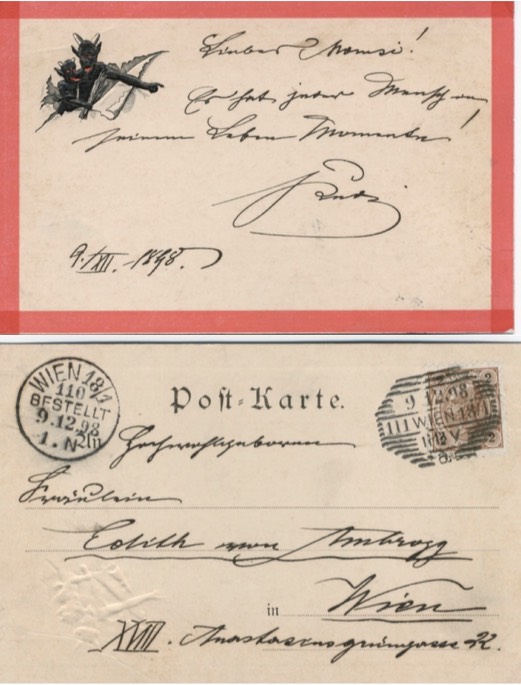 Lieber Momsi!
Es hat jeder Mensch in
seinem Leben Momente!
Rudi
9./XII. 1898.
WIEN 18/1
110
BESTELLT
9.12.98
1. N
Post-Karte.
9 12.98
WIEN 18/1
111
2
2
Hochwohlgeboren
Fräulein
Edith von Ambrogg
in Wien
XVIII. Anastasius grüngasse